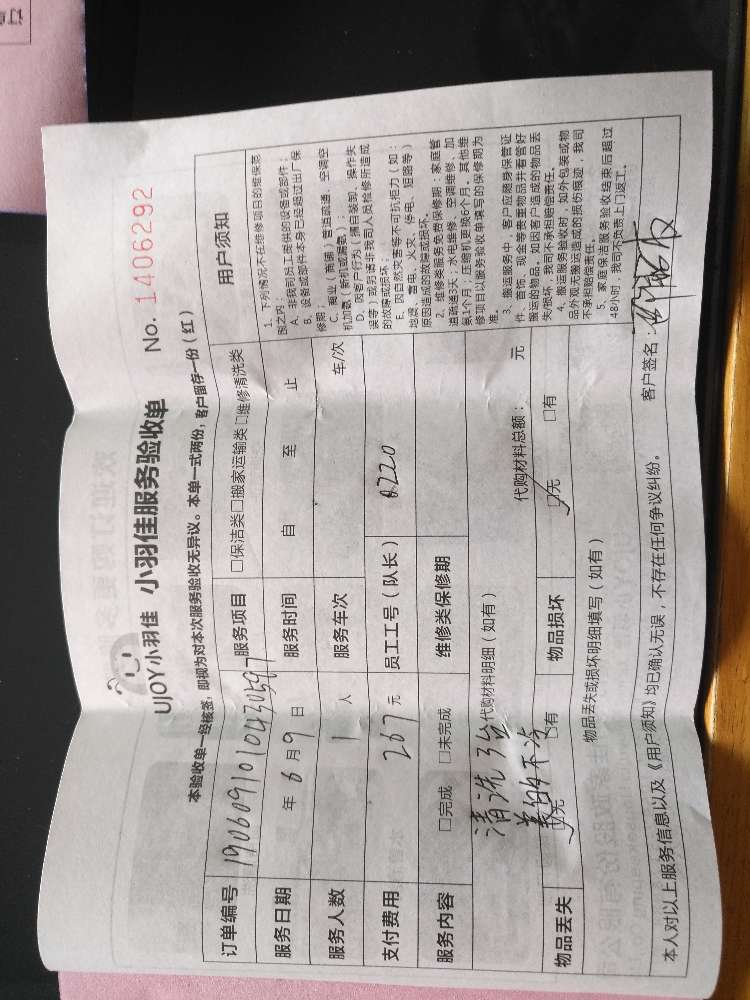 UJOY小羽佳 小羽佳服务验收单 No. 1406292
本验收单一经核签，即视为对本次服务验收无异议。本单一式两份，客户留存一份（红）
订单编号 服务项目 □保洁类□搬家运输类□维修清洗类
服务日期 年 6 月 9 日 服务时间 自 至 止
服务人数 1 人 服务车次 车/次
支付费用 267 元 员工工号（队长） 8220
服务内容 □完成 □未完成 维修类保修期
清洗3台 代购材料明细（如有） 代购材料总额： 元
美的不冷
物品丢失 □无 □有 物品损坏 □无 □有
物品丢失或损坏明细填写（如有）
用户须知
1、下列情况不在维修项目的维保范
围之内：
A、非我司员工提供的设备或部件；
B、设备或部件本身已经超过出厂保
修期；
C、商业（商铺）管道疏通、空调空
机加氨（新机或漏氨）；
D、因客户行为（擅自装卸、操作失
误等）或另请非我司人员检修所造成
的故障或损坏；
E、因自然灾害等不可抗拒力（如：
地震、雷电、火灾、停电、短路等）
原因造成的故障或损坏。
2、维修类服务免费保修期：家庭管
道疏通3天；水电维修、空调维修、加
氨1个月；压缩机更换6个月。其他维
修项目以服务验收单填写的保修期为
准。
3、搬运服务中，客户应随身保管证
件、首饰、现金等贵重物品并看管好
搬运的物品。如因客户造成的物品丢
失/损坏，我司不承担赔偿责任。
4、搬运服务验收时，如外包装或物
品外观无搬运造成的损伤痕迹，我司
不承担赔偿责任。
5、家庭保洁服务验收结束后超过
48小时，我司不负责上门返工。
本人对以上服务信息以及《用户须知》均已确认无误，不存在任何争议纠纷。 客户签名：